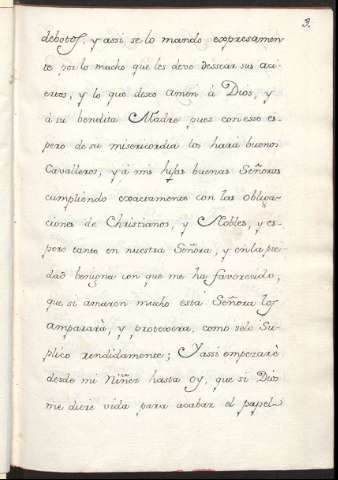 3.
debotos, y assi se lo mando expresamen
te por lo mucho que les devo dessear sus aci-
ertos, y lo que deseo amen à Dios, y
à su bendita Madre pues con esso es-
pero de su misericordia los hará buenos
Cavalleros, y à mis hijas buenas Señoras
cumpliendo exactamente con las obliga-
ciones de Christianos, y Nobles, y es-
pero tanto en nuestra Señora, y en la pie-
dad benigna con que me ha favorecido,
que si amaren mucho esta Señora los
ampararà, y protexera, como selo Su-
plico rendidamente; Y assi empezarè
desde mi Niñez hasta oy, que si Dios
me diere vida para acabar el papel